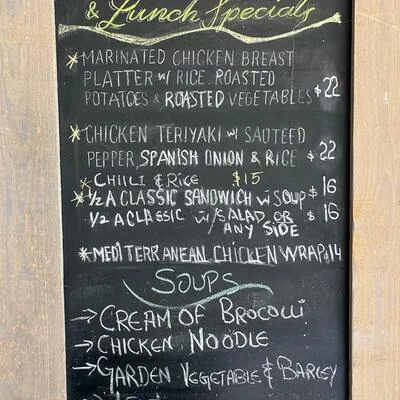 & Lunch Specials
* MARINATED CHICKEN BREAST
PLATTER w/ RICE, ROASTED
POTATOES & ROASTED VEGETABLES $22
* CHICKEN TERIYAKI w/ SAUTEED
PEPPER, SPANISH ONION & RICE $22
* CHILI & RICE $15
* 1/2 A CLASSIC SANDWICH w SOUP $16
1/2 A CLASSIC w/ SALAD OR $16
ANY SIDE
* MEDITERRANEAN CHICKEN WRAP $14
SOUPS
→ CREAM OF BROCOLLI
→ CHICKEN NOODLE
→ GARDEN VEGETABLE & BARLEY